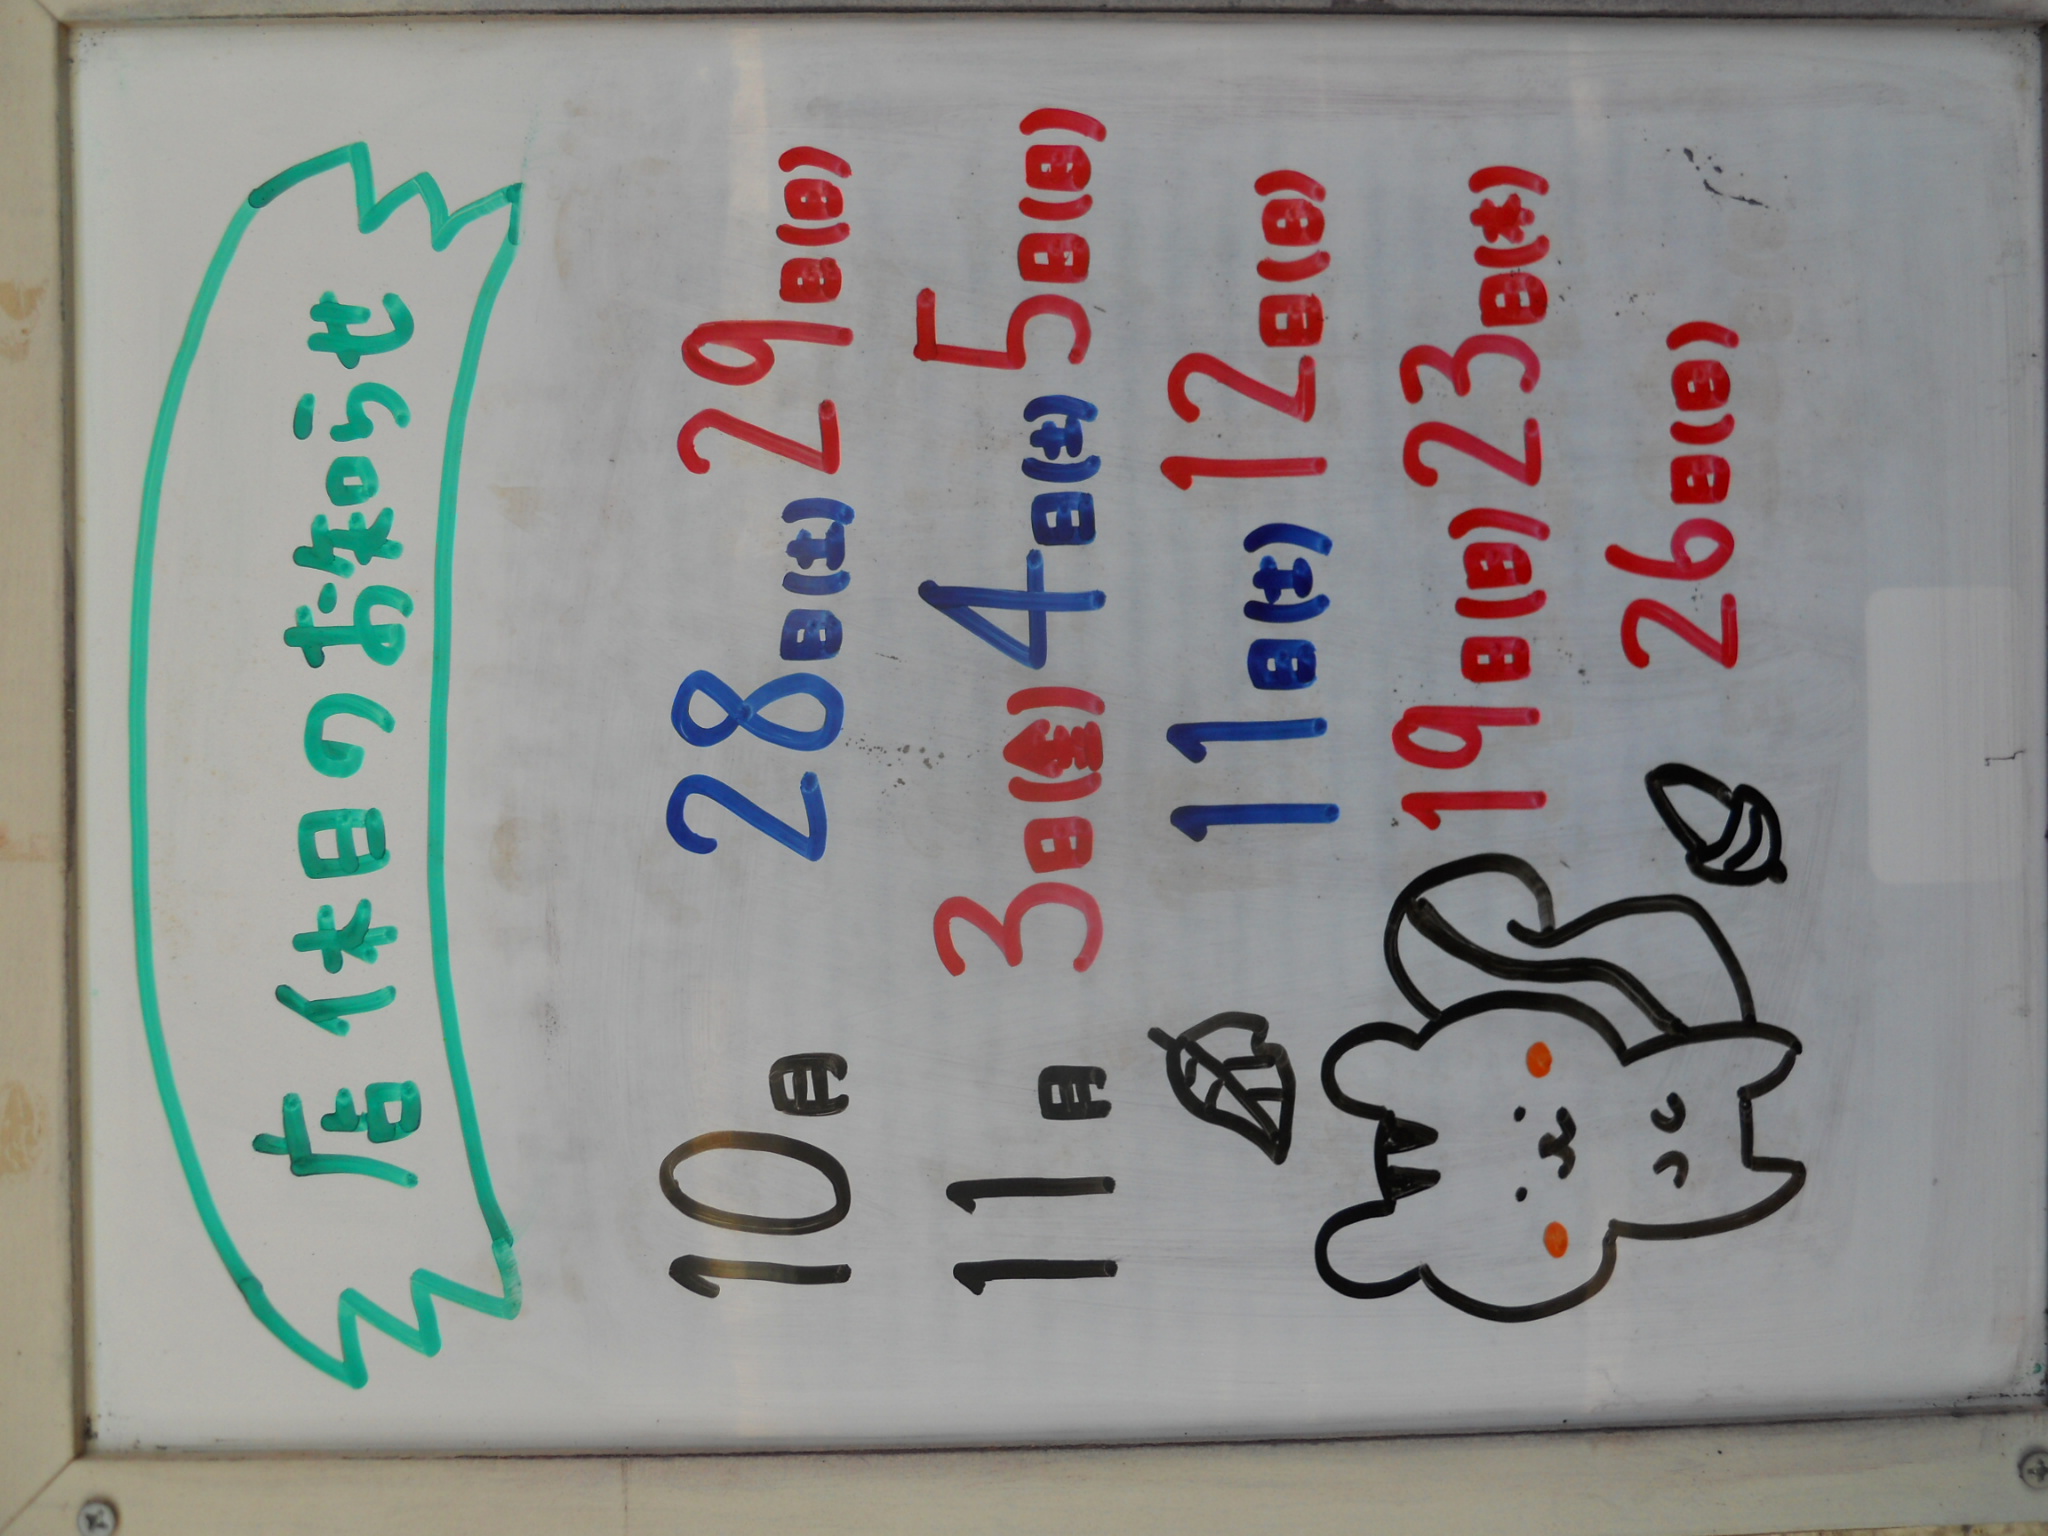 店休日のお知らせ
10月 28日(土) 29日(日)
11月 3日(金) 4日(土) 5日(日)
11日(土) 12日(日)
19日(日) 23日(木)
26日(日)